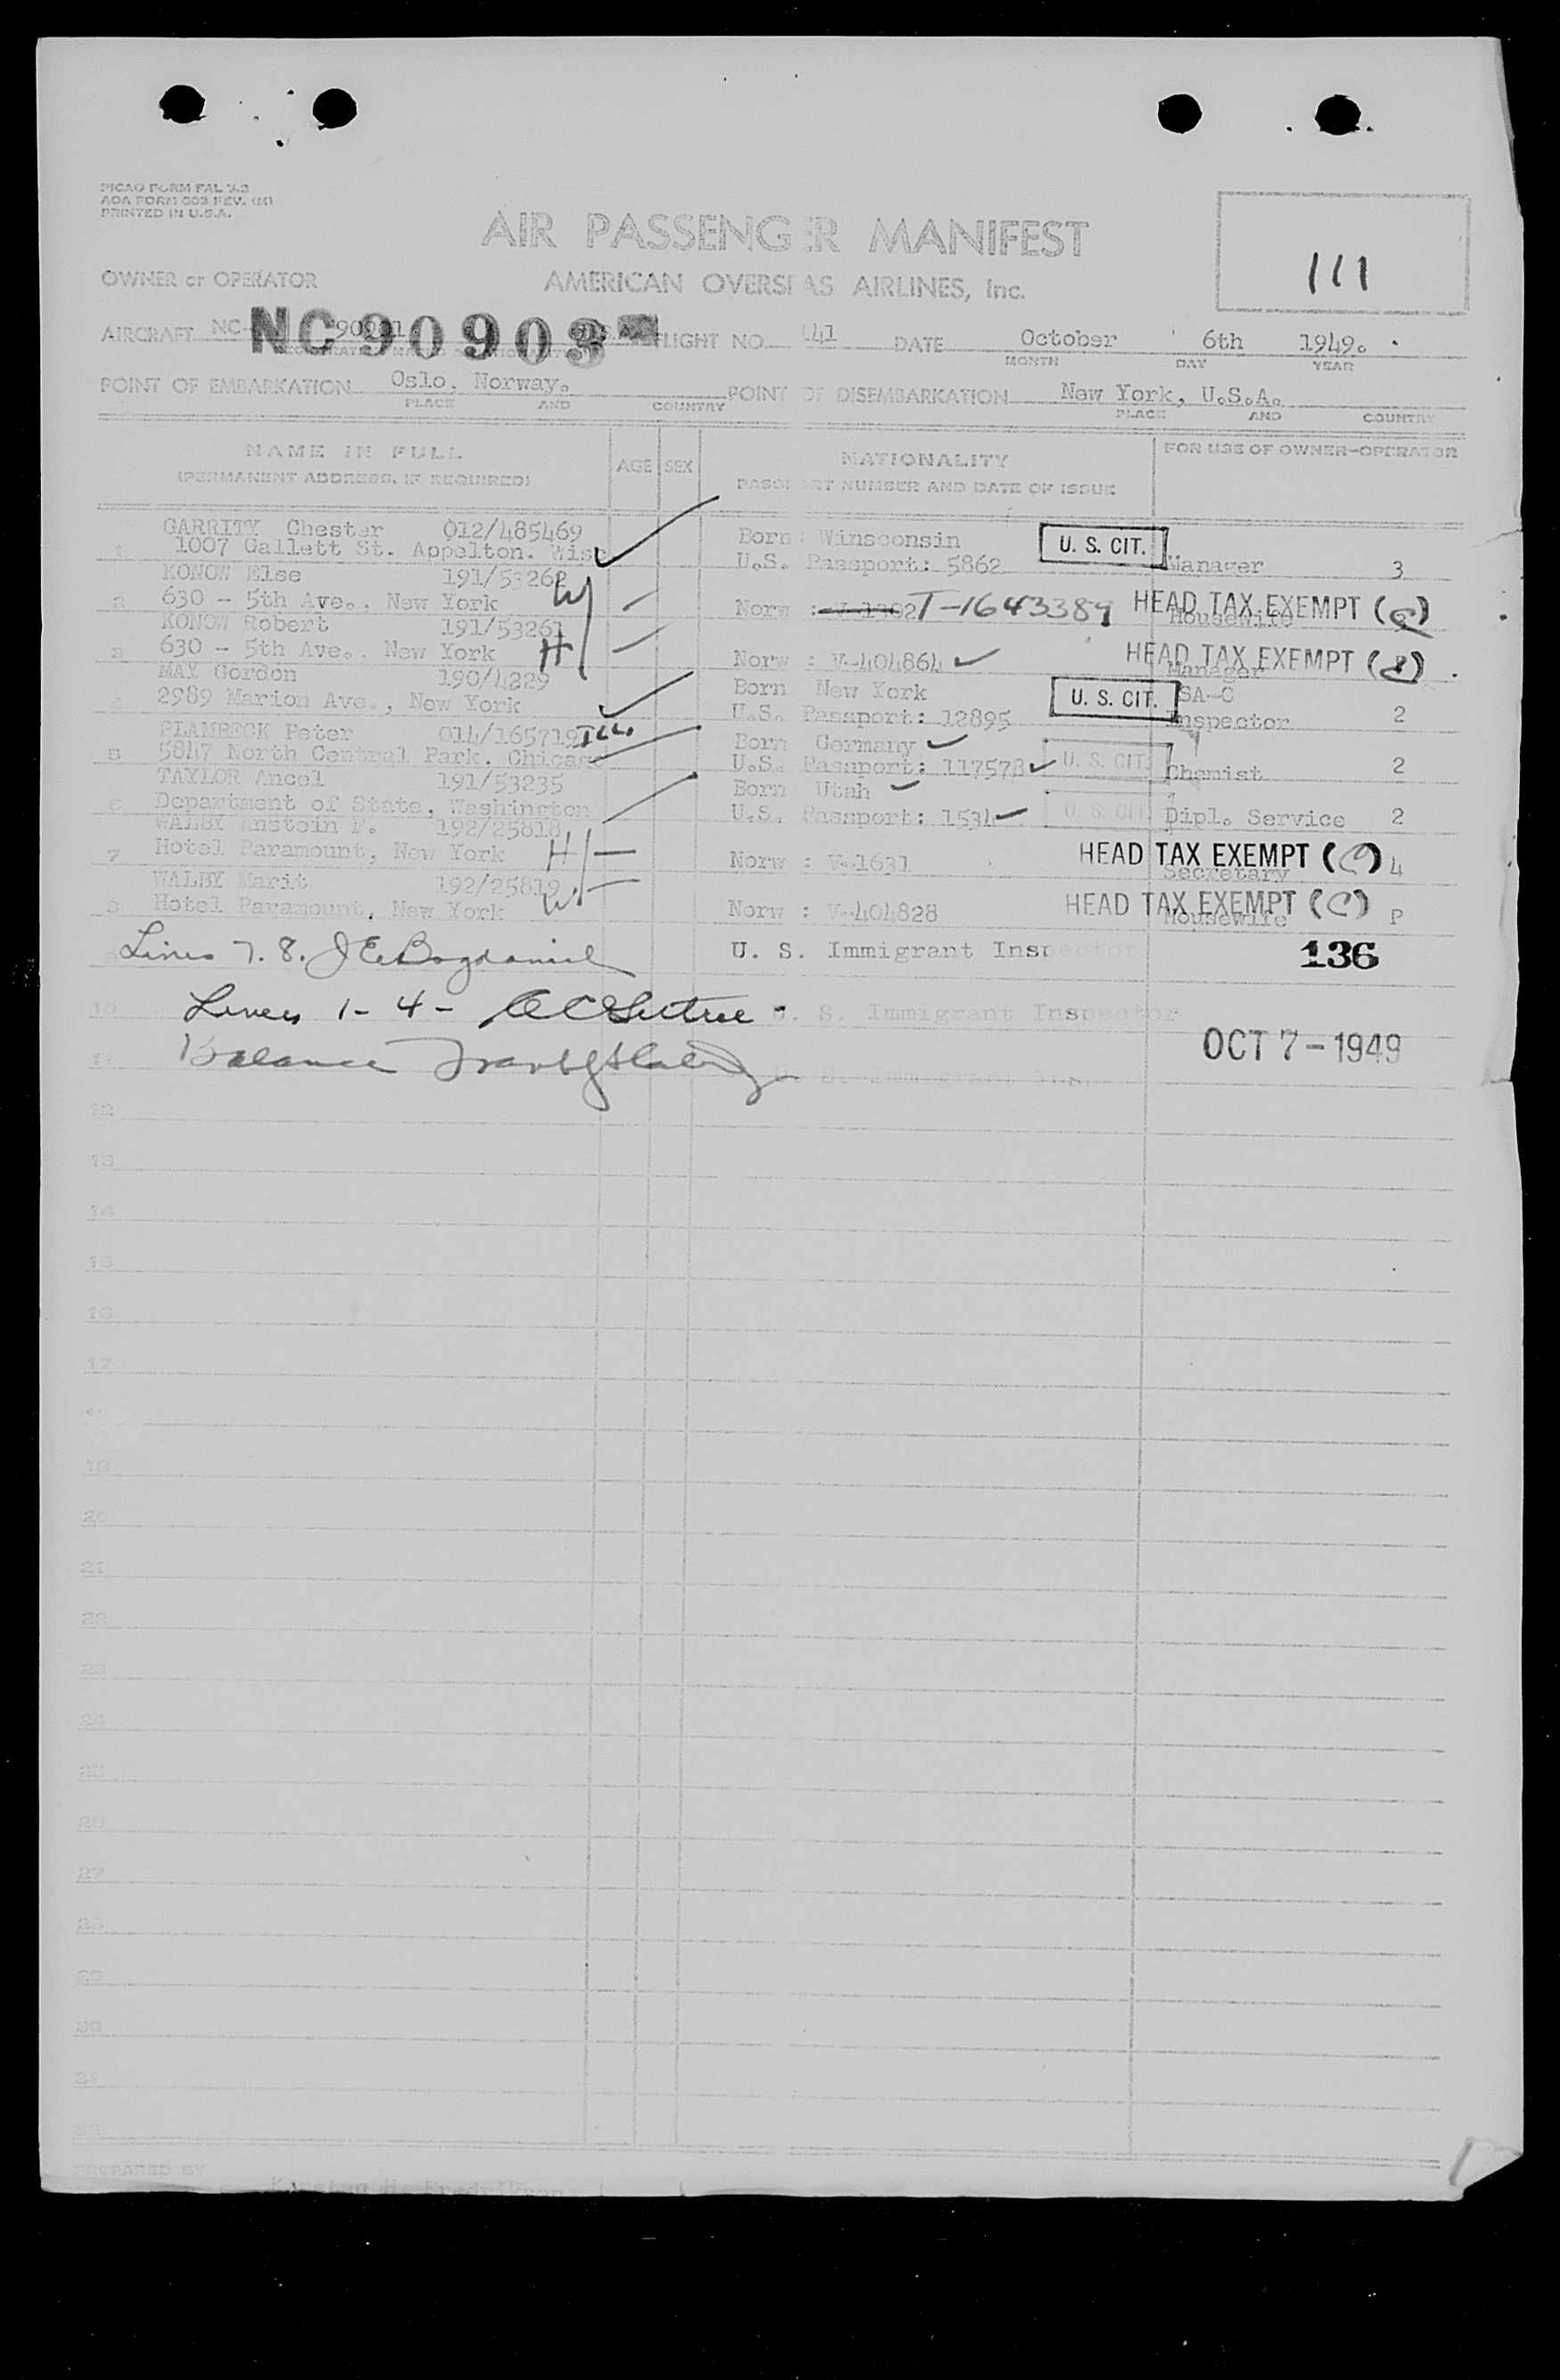 PICAO FORM FAL 3.3
AOA FORM 603 REV. (M)
PRINTED IN U.S.A.
AIR PASSENGER MANIFEST
111
OWNER or OPERATOR AMERICAN OVERSEAS AIRLINES, Inc.
AIRCRAFT NC- NC90903 FLIGHT NO. 141 DATE October 6th 1949.
MONTH DAY YEAR
POINT OF EMBARKATION Oslo, Norway. POINT OF DISEMBARKATION New York, U.S.A.
PLACE AND COUNTRY PLACE AND COUNTRY
NAME IN FULL AGE SEX NATIONALITY FOR USE OF OWNER-OPERATOR
(PERMANENT ADDRESS, IF REQUIRED) PASSPORT NUMBER AND DATE OF ISSUE
GARRITY Chester 012/485469 Born : Winsconsin U. S. CIT.
1 1007 Gallett St. Appelton. Wisc U.S. Passport: 5862 Manager 3
KONOW Else 191/53262 W
2 630 - 5th Ave., New York Norw : T-1643389 HEAD TAX EXEMPT Housewife
KONOW Robert 191/53261
3 630 - 5th Ave., New York H Norw : V-404864 HEAD TAX EXEMPT Manager
MAX Gordon 190/4229 Born New York U. S. CIT. SA-C
4 2989 Marion Ave., New York U.S. Passport: 12895 Inspector 2
PLAMBECK Peter 014/165719 Ill. Born Germany
5 5847 North Central Park. Chicago U.S. Passport: 117578 U. S. CIT. Chemist 2
TAYLOR Ancel 191/53235 Born Utah
6 Department of State, Washington U.S. Passport: 1534 U. S. CIT. Dipl. Service 2
WALBY Anstein F. 192/25818
7 Hotel Paramount, New York H Norw : V-1631 HEAD TAX EXEMPT (C) Secretary 4
WALBY Marit 192/25819
8 Hotel Paramount, New York W. Norw : V-404828 HEAD TAX EXEMPT (C) Housewife P
Lines 7. 8. J E Bogdaniel U. S. Immigrant Inspector 136
10 Lines 1-4- U. S. Immigrant Inspector
OCT 7-1949
11 Balance
12
13
14
15
16
17
19
20
21
22
23
24
25
26
27
28
29
30
31
32
PREPARED BY